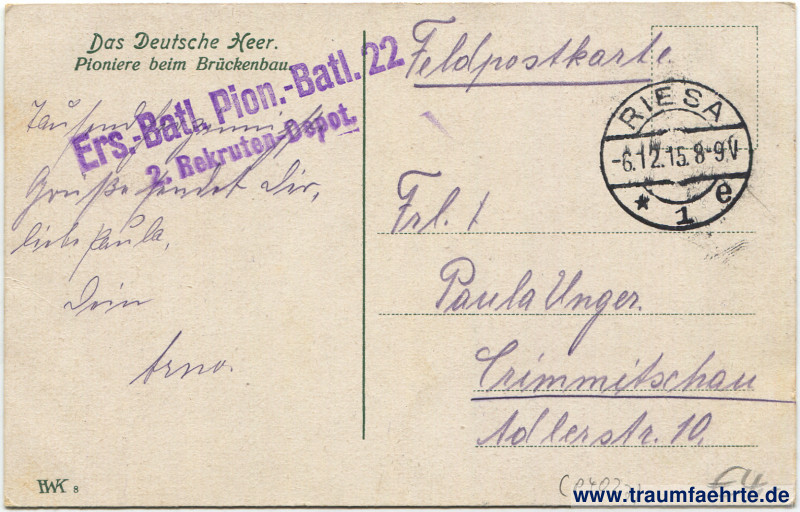 Das Deutsche Heer.
Pioniere beim Brückenbau.
Ers.-Batl. Pion.-Batl. 22
2. Rekruten-Depot.
Tausend
Grüße sendet Dir,
liebe Paula,
Dein
Arno.
HWK 8
Feldpostkarte
RIESA
-6.12.15. 8-9.V
* 1 e
Frl.
Paula Unger.
Crimmitschau
Adlerstr. 10.
www.traumfaehrte.de